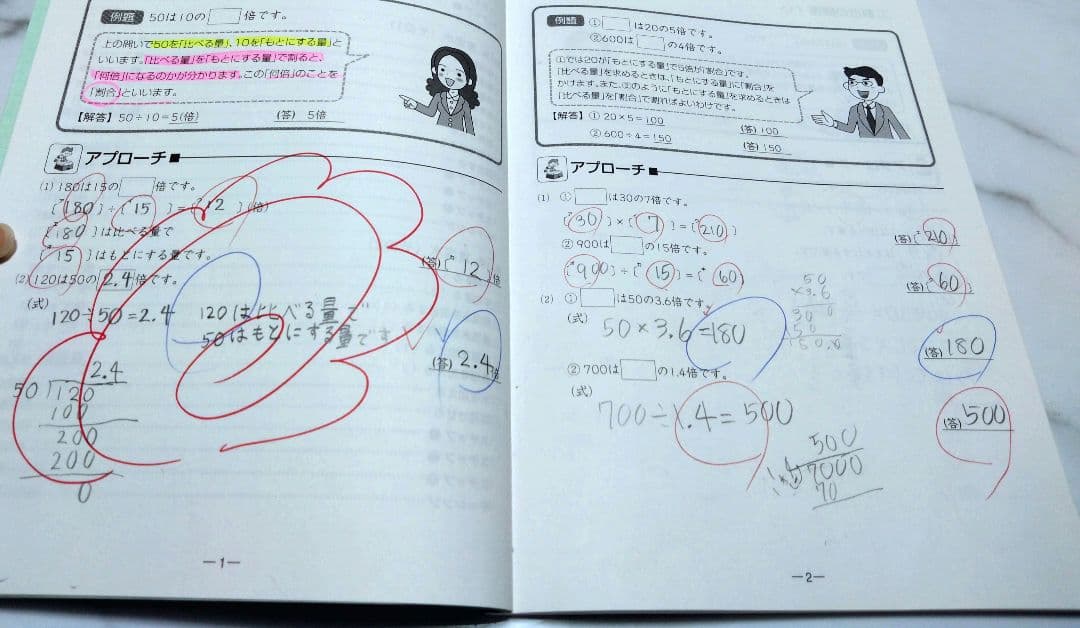 例題 50は10の□倍です。
上の問いで50を「比べる量」、10を「もとにする量」と
いいます。「比べる量」を「もとにする量」で割ると、
「何倍」になるのかが分かります。この「何倍」のことを
「割合」といいます。
【解答】50÷10=5(倍) (答) 5倍
アプローチ■
(1) 180は15の□倍です。
[180]÷[15]=[12](倍)
[180]は比べる量で
[15]はもとにする量です。
(答)[12]倍
(2) 120は50の2.4倍です。
(式)
120÷50=2.4
120は比べる量で
50はもとにする量です
(答) 2.4倍
2.4
50 120
100
200
200
0
―1―
例題 ①□は20の5倍です。
②600は□の4倍です。
①では20が「もとにする量」で5倍が「割合」です。
「比べる量」を求めるときは、「もとにする量」に「割合」を
かけます。また、②のように「もとにする量」を求めるときは
「比べる量」を「割合」で割ればよいわけです。
【解答】① 20×5=100 (答) 100
② 600÷4=150 (答) 150
アプローチ■
(1) ①□は30の7倍です。
[30]×[7]=[210]
(答)[210]
② 900は□の15倍です。
[900]÷[15]=[60]
(答)[60]
(2) ①□は50の3.6倍です。
(式)
50×3.6=180
50
×3.6
30 0
(答) 180
② 700は□の1.4倍です。
(式)
700÷1.4=500
(答) 500
500
7000
70
―2―